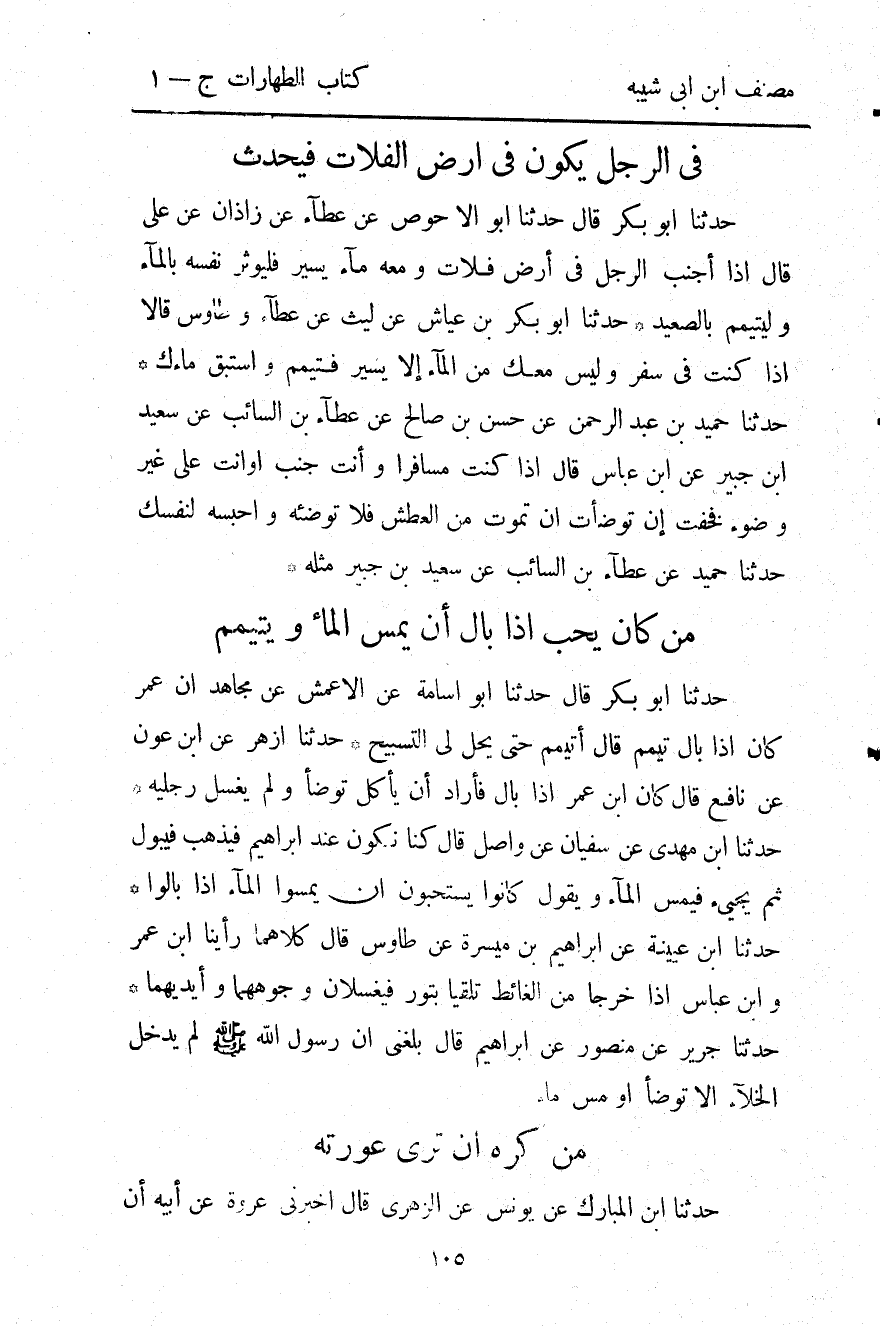 مصنف ابن ابى شيبه
كتاب الطهارات ج – ١
فى الرجل يكون فى ارض الفلات فيحدث
حدثنا ابو بكر قال حدثنا ابو الاحوص عن عطآء عن زاذان عن على
قال اذا أجنب الرجل فى أرض فلات و معه مآء يسير فليوثر نفسه بالمآء
و ليتيمم بالصعيد * حدثنا ابو بكر بن عياش عن ليث عن عطآء و طاوس قالا
اذا كنت فى سفر و ليس معك من المآء إلا يسير فتيمم و استبق ماءك *
حدثنا حميد بن عبد الرحمن عن حسن بن صالح عن عطآء بن السائب عن سعيد
ابن جبير عن ابن عباس قال اذا كنت مسافرا و أنت جنب اوانت على غير
و ضوء فخفت إن توضأت ان تموت من العطش فلا توضئه و احبسه لنفسك
حدثنا حميد عن عطآء بن السائب عن سعيد بن جبير مثله *
من كان يحب اذا بال أن يمس الماء و يتيمم
حدثنا ابو بكر قال حدثنا ابو اسامة عن الاعمش عن مجاهد ان عمر
كان اذا بال تيمم قال أتيمم حتى يحل لى التسبيح * حدثنا ازهر عن ابن عون
عن نافع قال كان ابن عمر اذا بال فأراد أن يأكل توضأ و لم يغسل رجليه *
حدثنا ابن مهدى عن سفيان عن واصل قال كنا نكون عند ابراهيم فيذهب فيبول
ثم يجيىء فيمس المآء و يقول كانوا يستحبون ان يمسوا المآء اذا بالوا *
حدثنا ابن عيينة عن ابراهيم بن ميسرة عن طاوس قال كلاهما رأينا ابن عمر
و ابن عباس اذا خرجا من الغائط تلقيا بتور فيغسلان و جوههما و أيديهما *
حدثنا جرير عن منصور عن ابراهيم قال بلغنى ان رسول الله ﷺ لم يدخل
الخلآء الا توضأ او مس ماء
من كره ان ترى عورته
حدثنا ابن المبارك عن يونس عن الزهرى قال اخبرنى عروة عن أبيه أن
١٠٥